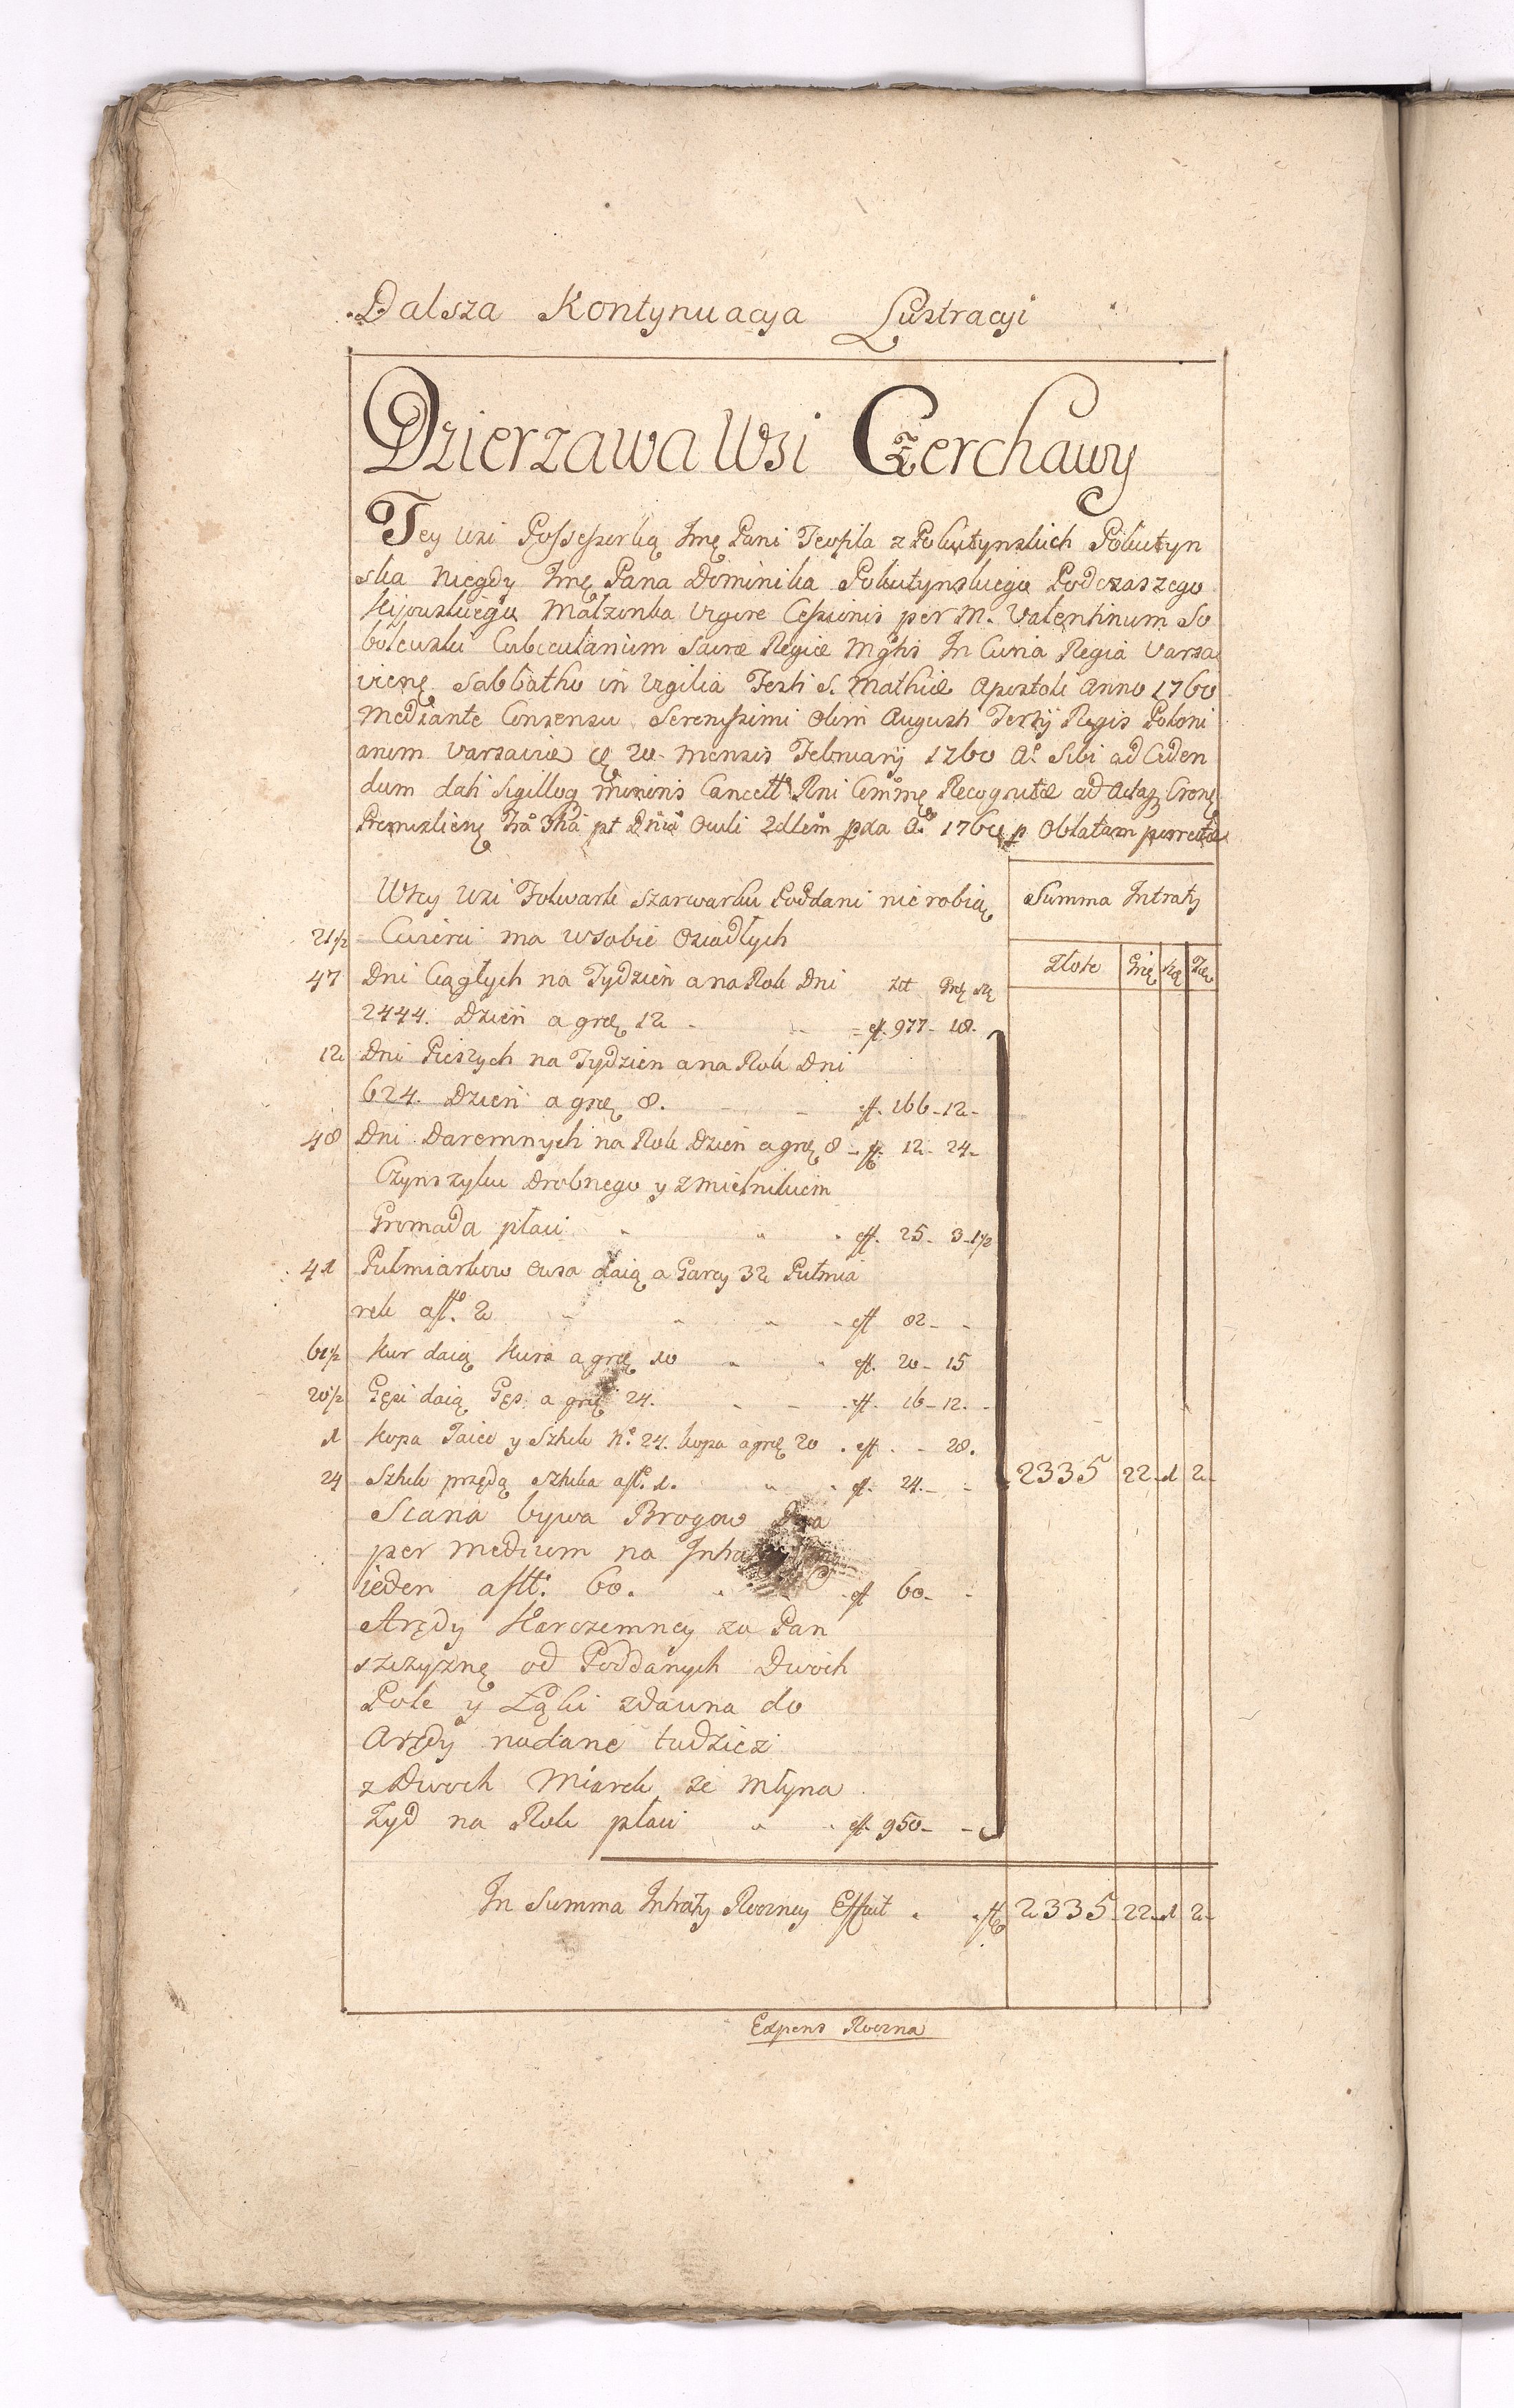 Dalsza Kontynuacya Lustracyi
Dzierzawa Wsi Czerchawy
Tey wsi Possessorką Jmę Pani Teofila z Pokutynskich Pokutyn
ska niegdy Jmę Pana Dominika Pokutynskiego Podczaszego
Kijowskiego Małzonka Vigore Cessionis per M. Valentinum So
bolewski Cubicularium Sacræ Regiæ Mgtis In Curia Regia Varsa
vienę Sabbatho in Vigilia Festi S. Mathiæ Apostoli Anno 1760
Mediante Consensu Serenissimi Olim Augusti Tertij Regis Poloni
arum Varsaviæ 20 Mensis February 1760 Aº Sibi ad Ceden
dum dati Sigilloq minoris Cancell Rni Recognitæ ad Crone
Premislienę Oculi 1760 p Oblatam porrectæ
Wtey wsi Folwark szarwarku Poddani nie robią
Summa Intraty
21 1/2 Cwierci ma wsobie Osiadłych
Złote Grę Szę
47 Dni Ciągłych na Tydzien a na Rok Dni złt Grę szę
2444. Dzień a grę 12 - - = f. 977 - 18.
12 Dni Pieszych na Tydzien a na Rok Dni
624. Dzień a grę 8. - - ff. 166 - 12 -
48 Dni Daremnych na Rok Dzień a grę 8 - ff. 12 - 24 -
Czynszyku Drobnego y zmielnikiem
Gromada płaci - " . ff. 25 - 3 - 1 1/2
41 Pułmiarkow Owsa daią a Garcy 32 Pułmia
rek a fl. 2 - " " - ff 82 - -
61 1/2 Kur daią Kura a grę 10 " " ff. 20 - 15
20 1/2 Gęsi daią Gęs a grę 24. - - ff. 16 - 12. -
1 Kopa Jaiec y Sztuk Nº 24. kopa a grę 20 . ff . - 28.
24 Sztuk przędą Sztuka a fl. 1. " . f. 24. - - 2335 22 - 1 2 -
Siana bywa Brogow Dwa
per medium na
ieden a fłł. 60. . - f 60 - -
Arędy Karczemney za Pan
szczyznę od Poddanych Dwoch
Pole y Łąki zdawna do
Arędy nadane tudziez
z Dwoch Miarek ze Młyna
Zyd na Rok płaci " . f. 950 - -
In Summa Intraty Roczney Effcit . . ff 2335 - 22 - 1 2 -
Expens Roczna